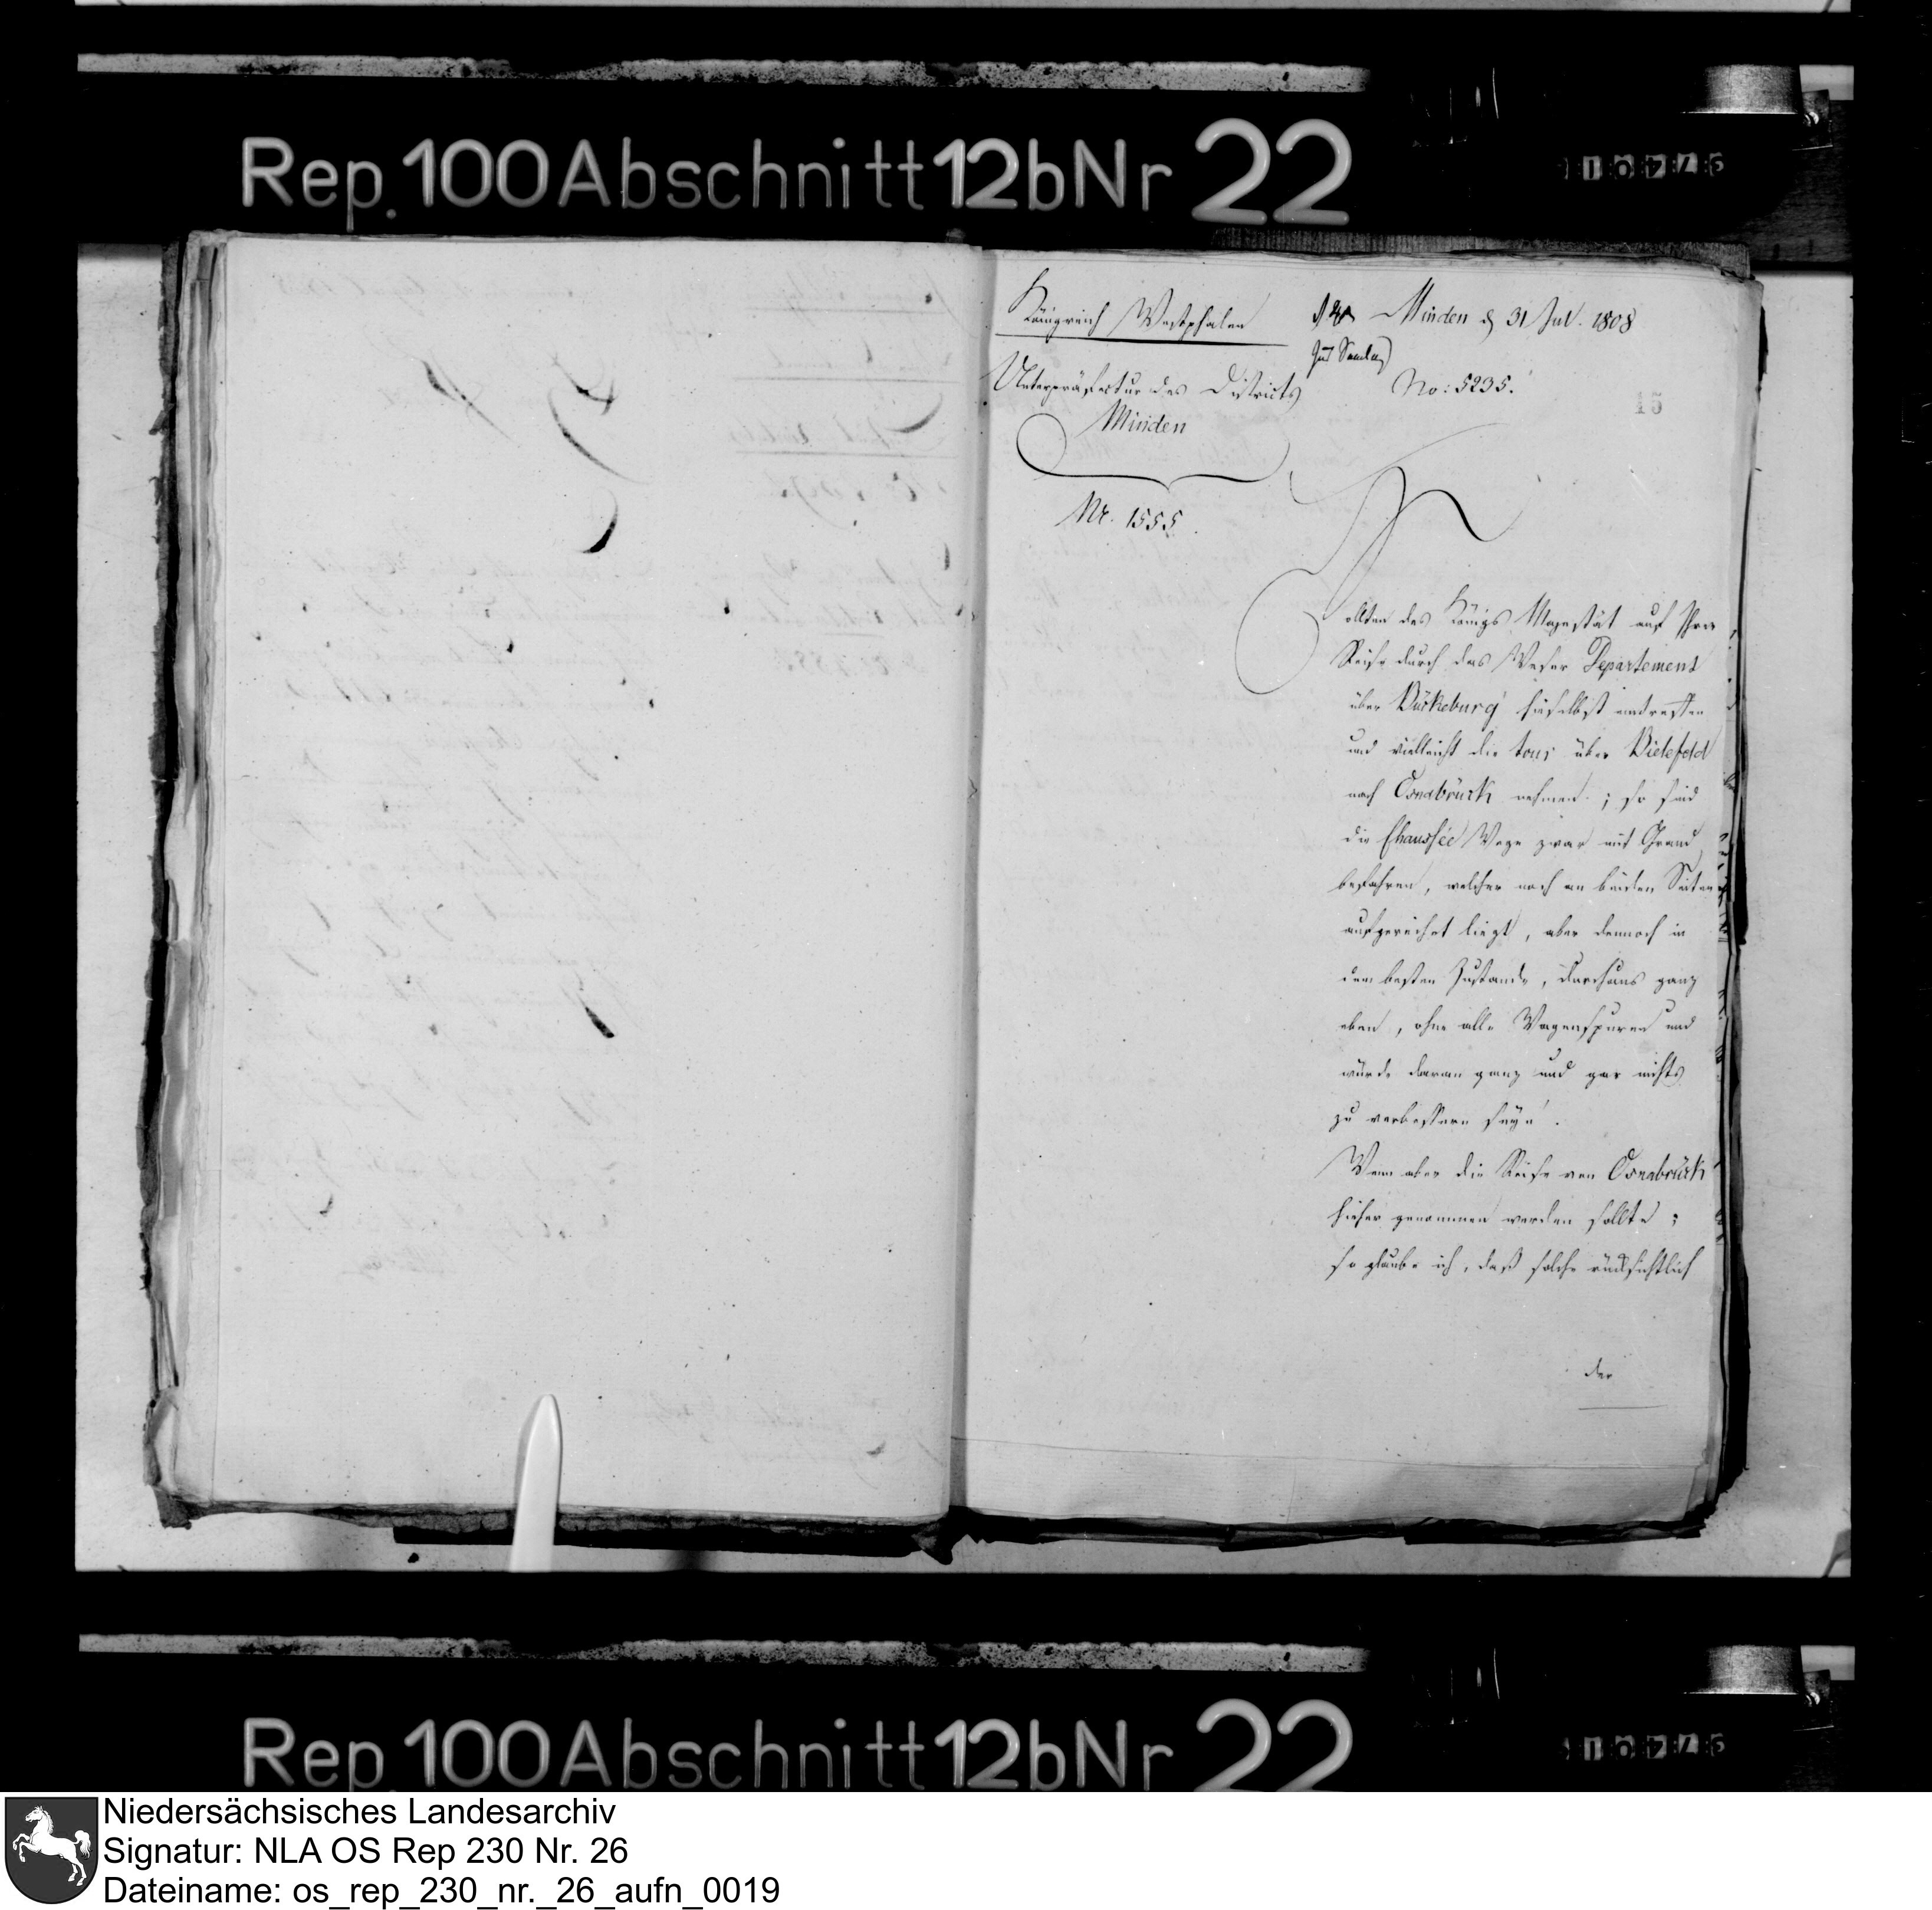 Rep. 100 Abschnitt 12b Nr 22
Königreich Westphalen
Minden d 31 Jul. 1808
Unterpräfectur des Districts
Minden
No: 5235.
15
Nr. 1555.
Sollten des Königs Majestät auf Ihrer
Reise durch das Weser Departement
über Bückeburg hieselbst eintreffen
und vielleicht die tour über Bielefeld
nach Osnabrück nehmen; so sind
die Chaussée Wege zwar mit Grand
befahren, welcher noch an beiden Seiten
aufgereihet liegt, aber dennoch in
dem besten Zustande, durchaus ganz
eben, ohne alle Wagenspuren und
würde daran ganz und gar nichts
zu verbessern seyn.
Wenn aber die Reise von Osnabrück
hieher genommen werden sollte;
so glaube ich, daß solche rücksichtlich
der
Rep. 100 Abschnitt 12b Nr 22
Niedersächsisches Landesarchiv
Signatur: NLA OS Rep 230 Nr. 26
Dateiname: os_rep_230_nr._26_aufn_0019